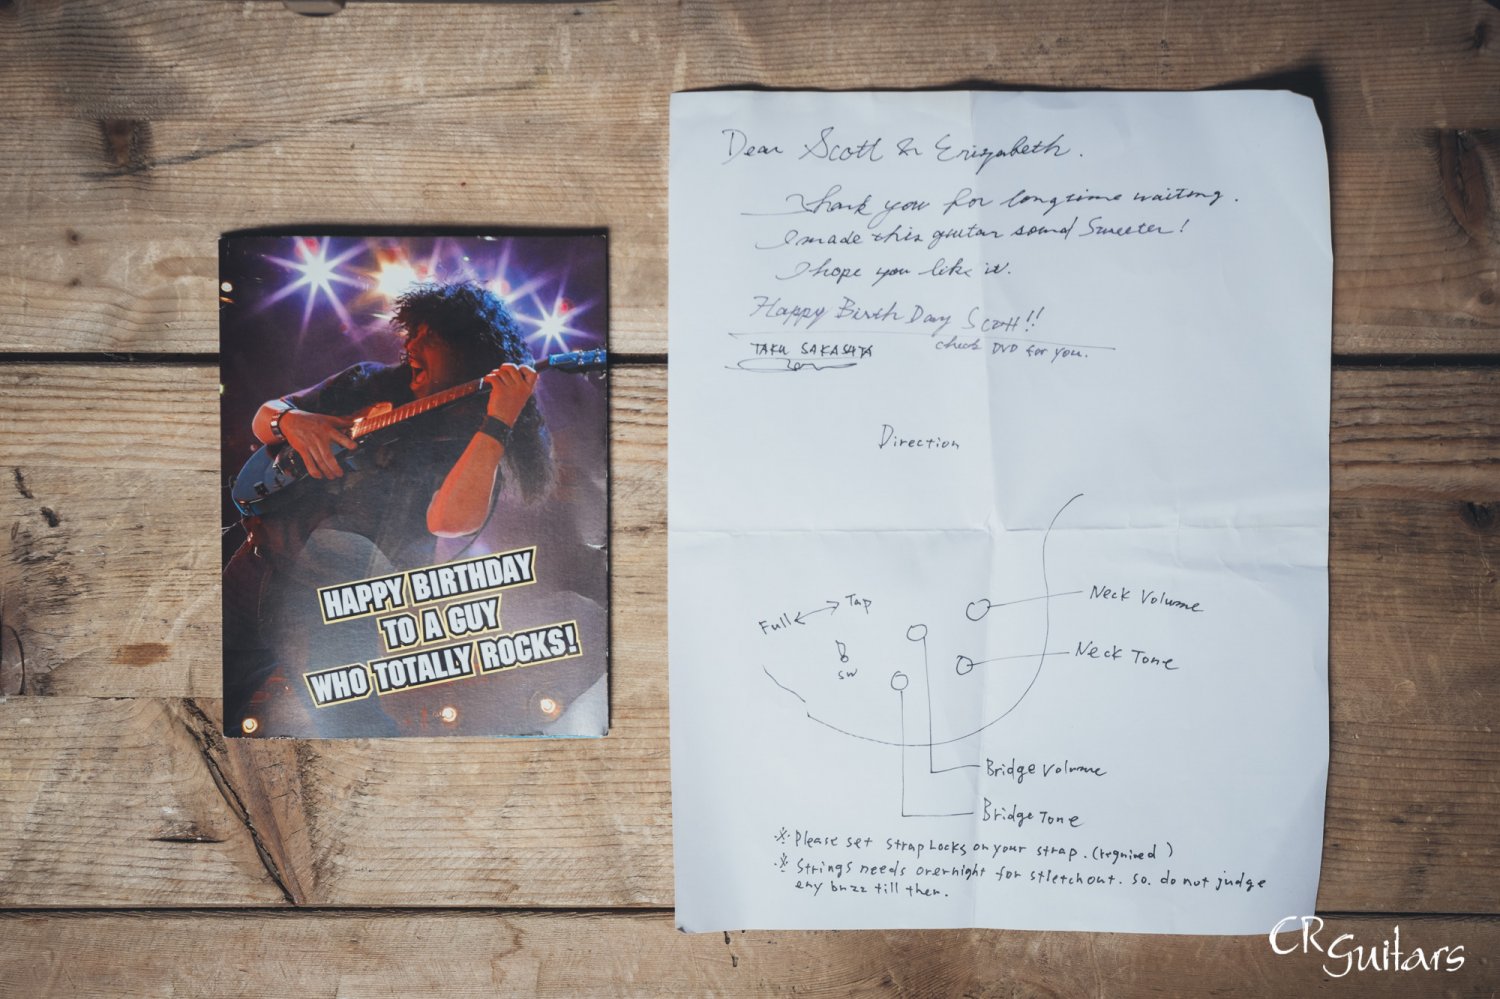 HAPPY BIRTHDAY
TO A GUY
WHO TOTALLY ROCKS!
Dear Scott & Erizabeth.
Thank you for longtime waiting.
I made this guitar sound Sweeter!
I hope you like it.
Happy Birth Day Scott!!
TAKU SAKASHTA
check DVD for you.
Direction
Full Tap
SW
Neck Volume
Neck Tone
Bridge Volume
Bridge Tone
※ Please set strap Locks on your strap. (required)
※ Strings needs overnight for stletchout. so. do not judge
eny buzz till then.
CR Guitars